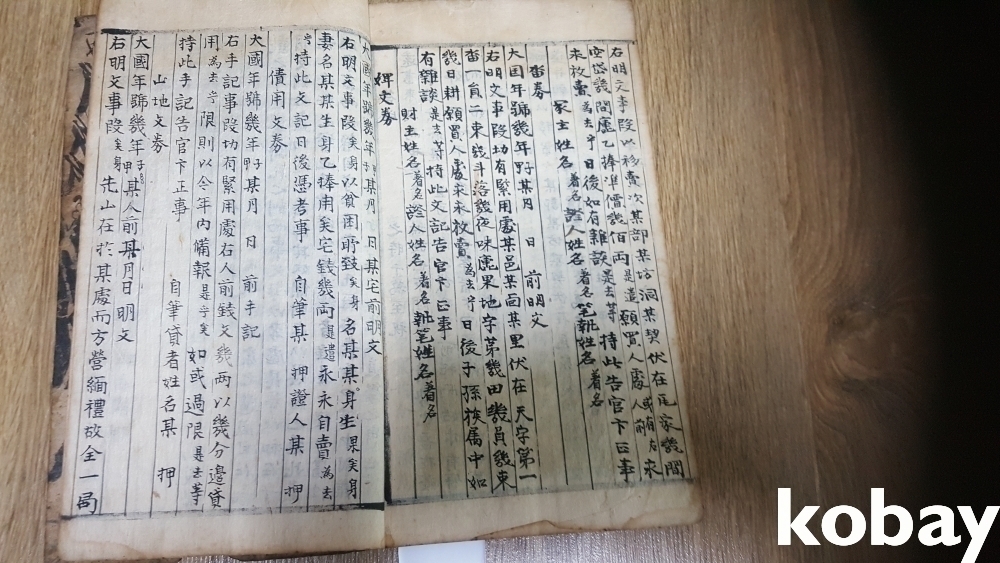 右明文事段以移賣次某部某坊洞某契伏在瓦家幾間
空垈幾間廬乙捧準價幾佰兩是遣願買人處人前
來放賣為去乎日後如有雜談是去等持此告官卞正事
家主姓名著名證人姓名著名筆執姓名著名
畓券
大国年號幾年某月 日 前明文
右明文事段切有緊用處某邑某面某里伏在天字第一
畓一負二束幾斗落幾夜味廬果地字第幾田幾員幾束
幾日耕願買人處來來放賣為去乎日後子孫族属中如
有雜談是去等持此文記告官卞正事
財主姓名著名證人姓名著名執筆姓名著名
婢文券
大国年號幾年某月 日某宅前明文
右明文事段矣身以貧困所致矣身名某某身生果矣身
妻名某某生身乙捧用矣宅錢幾兩是遣永永自賣為去
乎持此文記日後憑考事 自筆某 押證人某 押
債用文券
大國年號幾年某月 日 前手記
右手記事段切有緊用處右人前錢文幾兩以幾分邊貸
用為去乎限則以今年內備報是乎矣如或過限是去等
持此手記告官卞正事 自筆貸者姓名某 押
山地文券
大國年號幾年某人前某月日明文
右明文事段矣身先山在於某處而方營緬禮故全一局
kobay